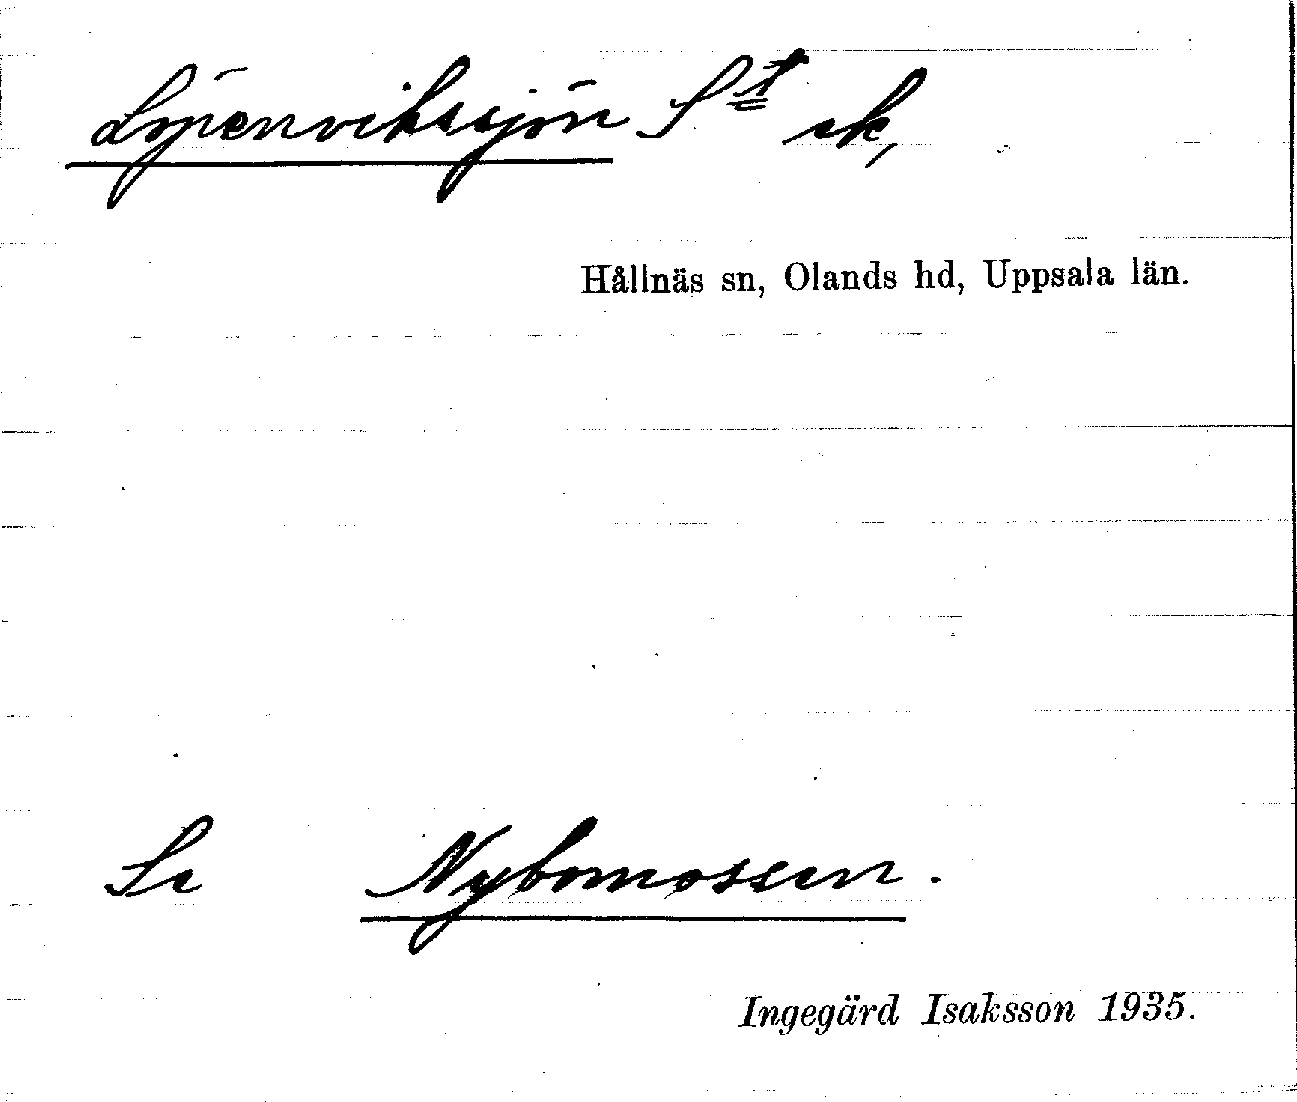 Löpenvikssjön St sk,
Hållnäs sn, Olands hd, Uppsala län.
Se Nybomossen.
Ingegärd Isaksson 1935.